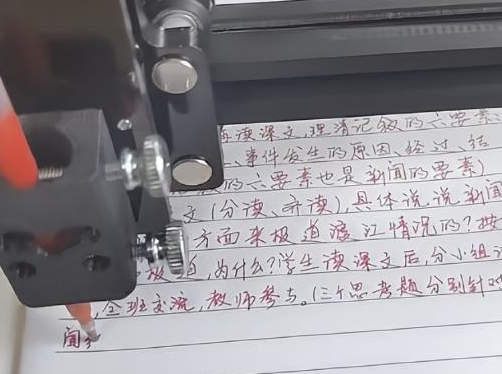 读课文,理清记叙的六要素:
、事件发生的原因、经过、结
的六要素也是新闻的要素)
文(分读、齐读),具体说说新闻
方面来报道渡江情况的?按
,为什么?学生读课文后,分小组
,全班交流,教师参与。(三个思考题分别针对
闻